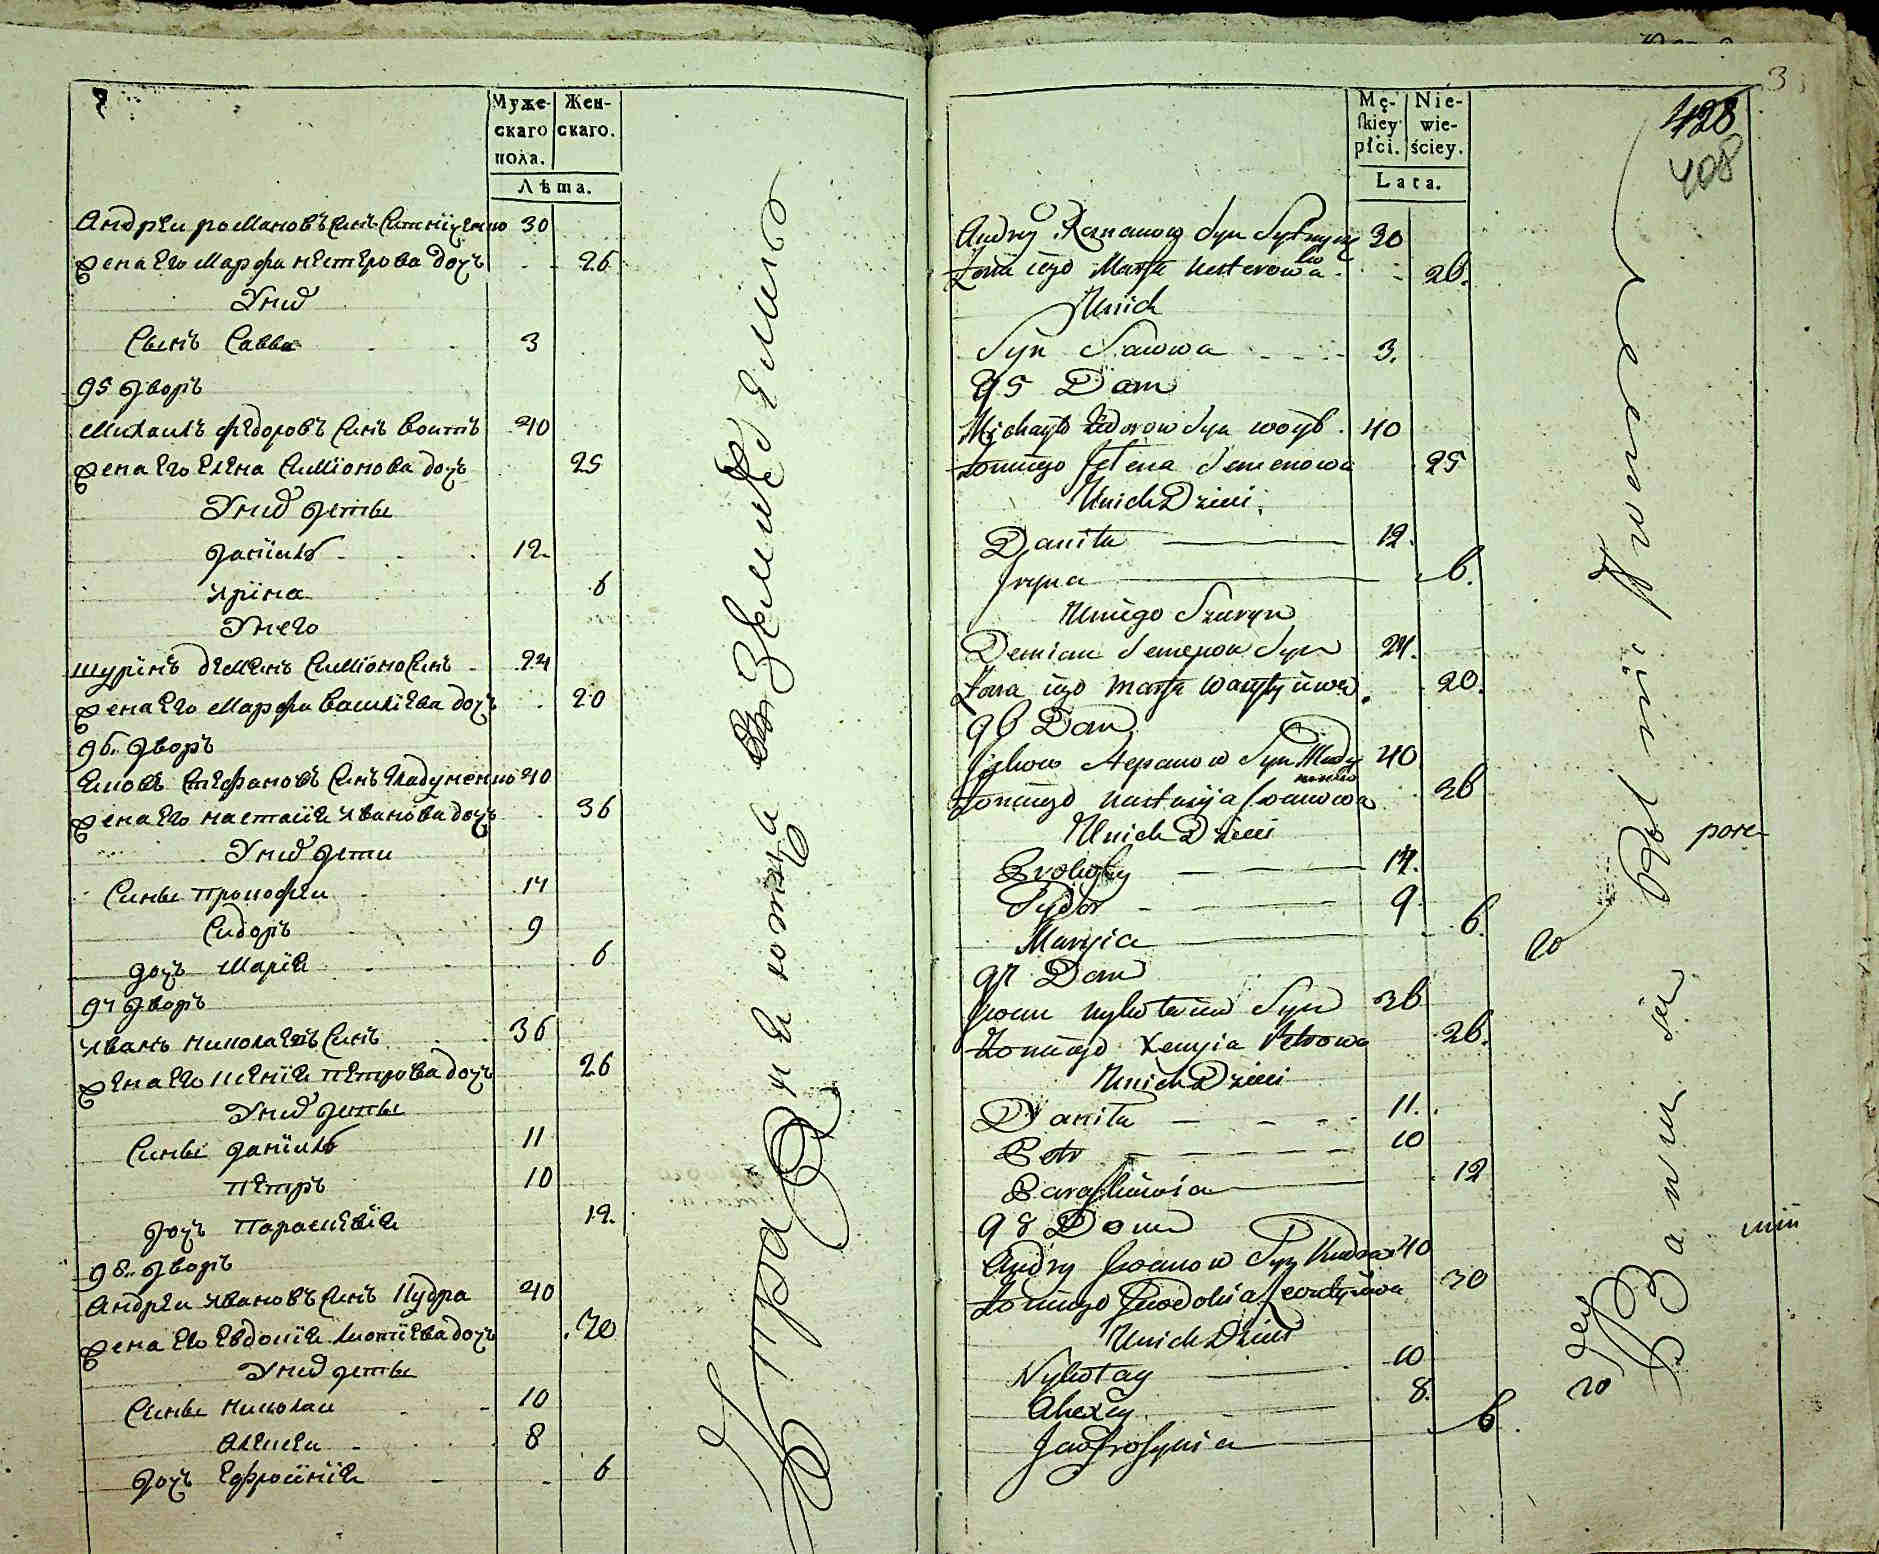 Муже- Жен-
скаго скаго.
пола.
Лѣта.
Андрѣи романовъ синъ 30
жена его Марфа нестерова дочъ 26
У нихъ
Сынъ Савва 3
95 дворъ
Михаилъ федоровъ синъ воитъ 40
жена его Елена Симионова дочъ 25
У нихъ детыы
данїилъ 12
ирїна 6
У него
шурїнъ демянъ Симионо синъ 24
жена его Марфа василїева дочъ 20
96 дворъ
стефановъ синъ 40
жена его настасїя иванова дочъ 36
У нихъ дети
Сины прокофеи 14
Сидоръ 9
дочъ Марїя 6
97 дворъ
иванъ николаевъ синъ 36
жена его ксенїя петрова дочъ 26
У нихъ детыы
Сины данїилъ 11
петръ 10
дочъ параскевїя 12
98 дворъ
Андрѣи ивановъ синъ Кудра 40
жена его Евдокїя дочъ 30
У нихъ детыы
Сины николаи 10
алексеи 8
дочъ Ефросїнїя 6
Mę- Nie-
skiey wie-
płci. ściey.
Lata.
3
428
408
Andrey Romanow Syn 30
Zona iego Marfa Nesterowa 26.
U nich
Syn Sawwa 3.
95 Dom
Michayło Fedorow Syn woyt 40
Zona iego Jelena Semenowa 25
U nich Dzieci
Daniło 12.
Jryna 6.
U niego Szuryn
Demian Semenow Syn 24.
Zona iego Marfa Wasylijowa 20.
96 Dom
Jakow Stepanow Syn 40
Zona iego Nastasija Jwanowa 36
U nich Dzieci
Prokofey 14.
Sydor 9.
Maryia 6.
97 Dom
Jwan Nykołaiew Syn 36
Zona iego Xenyia Petrowa 26.
U nich Dzieci
Daniło 11.
Petr 10
Paraskiewia 12
98 Dom
Andrey Jwanow Syn Kudra 40
Zona iego Jewdokia Leontyiowa 30
U nich Dzieci
Nykołay 10
Alexey 8.
Jawfrosynia 6